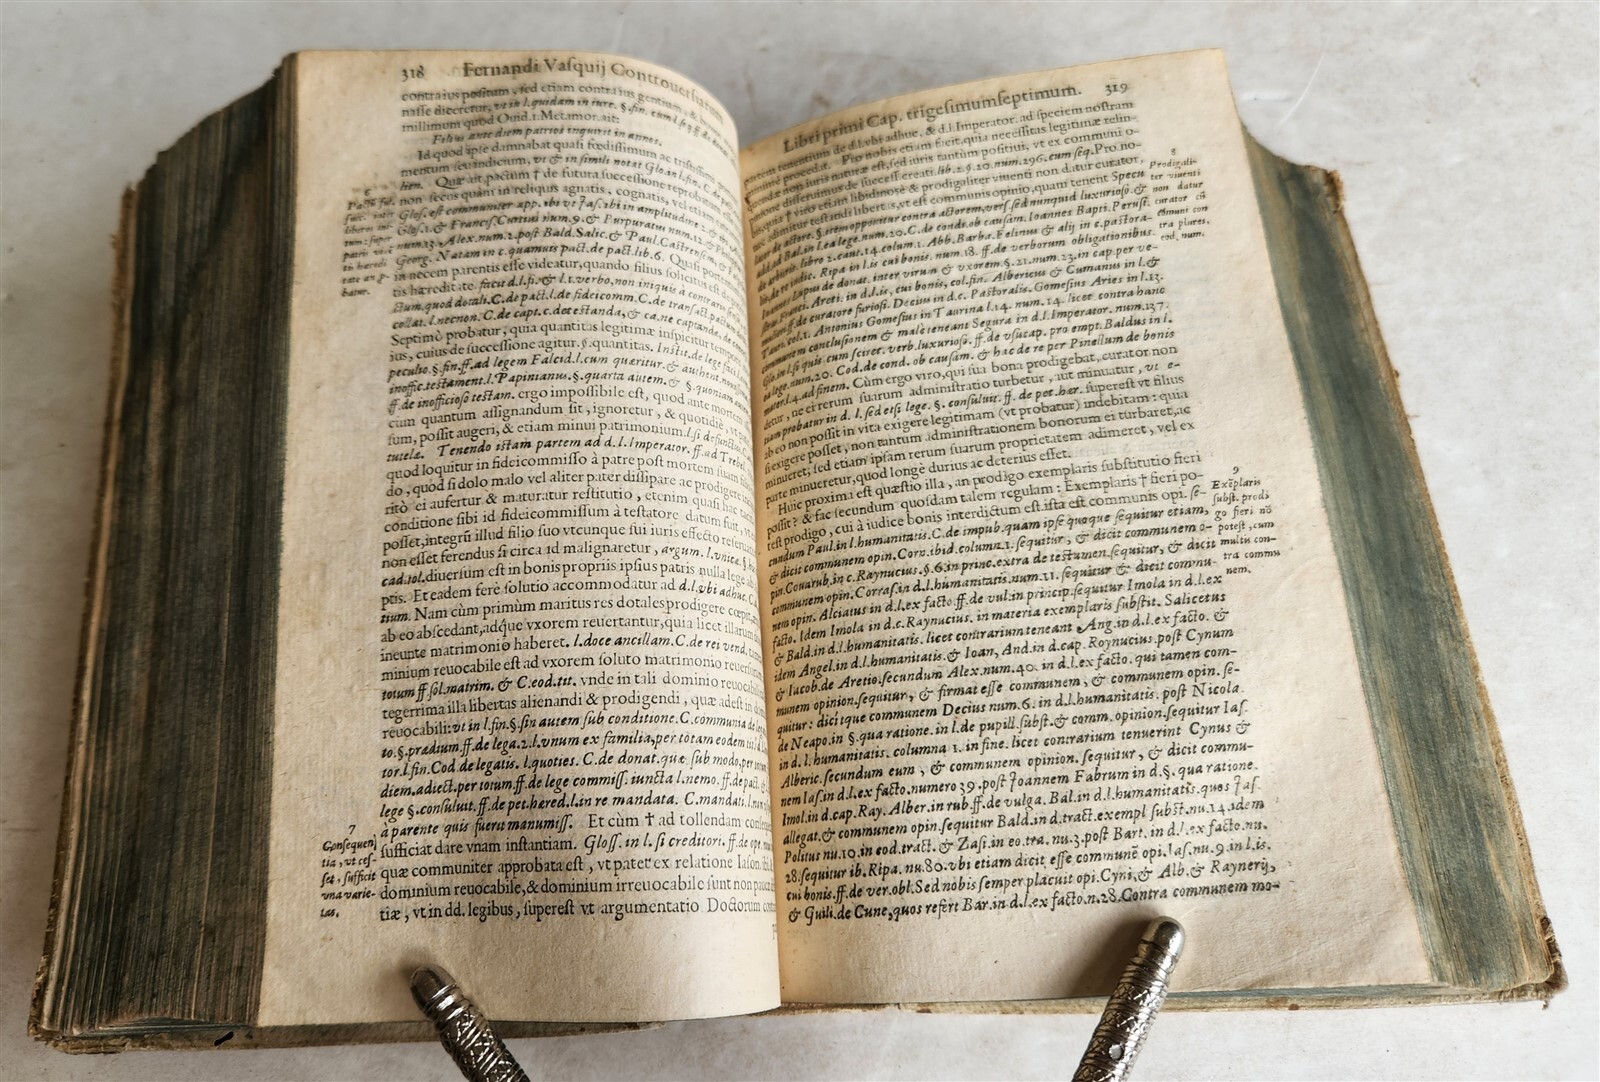 318 Fernandi Vaſquij Controuerſiarum
contra ius poſitum, ſed etiam contra ius gentium, &
naſſe diceretur, vt in l. quidam in iure. §. fin. cum l. ſeq. ff. de donat.
millimum quod Ouid. 1. Metamor. ait:
Filius ante diem patrios inquirit in annos.
Id quod ipſe damnabat quaſi fœdiſſimum ac
mentum fœundicium, vt & in ſimili notat Gloſ. in l. fin. C. de
Quæ ait, pactum † de futura ſucceſſione
6
Pactũ fut.
ſucc. inter
liberos
non ſecus quàm in reliquis agnatis, cognatis, vel
Gloſ. eſt communiter app. ibi vt Jaſ. ibi in
Gloſ. 1. & Franciſ. Curtius num. 9. & Purpuratus num. 12. &
num. 13. Alex. num. 2. poſt Bald. Salic. & Paul. Caſtrenſem, &
Georg. Natam in c. quamuis pact. de pact. lib. 6. Quaſi
in necem parentis eſſe videatur, quando filius ſolicitus eſt de
tis hæreditate. facit d. l. fi. & l. 1. verbo, non iniquis à contrario
ctum, quod dotali. C. de pact. l. de fideicomm. C. de tranſact.
collat. l. necnon. C. de capt. c. deteſtanda, & ca. ne captandæ.
Septimò probatur, quia quantitas legitimæ inſpicitur
ius, cuius de ſucceſſione agitur. §. quantitas. Inſtit. de lege
peculio. §. fin. ff. ad legem Falcid. l. cum quæritur. & authent.
inoffic. teſtament. l. Papinianus. §. quarta autem. & §. quoniam
ff. de inofficioſo teſtam. ergo impoſsibile eſt, quod ante
cum quantum aſſignandum ſit, ignoretur, & quotidie,
ſum, poſſit augeri, & etiam minui patrimonium. l. ſi defunctus.
tutelæ. Tenendo iſtam partem ad d. l. Imperator. ff. ad Trebel.
quod loquitur in fideicommiſſo à patre poſt mortem ſuam
do, quòd ſi dolo malo vel aliter pater diſsipare ac
ritò ei aufertur & maturatur reſtitutio, etenim quaſi hac
conditione ſibi id fideicommiſſum à teſtatore datum fuit,
poſſet, integrũ illud filio ſuo vtcunque ſui iuris effecto
non eſſet ferendus ſi circa id malignaretur, argum. l. vnicæ. §.
cad. tol. diuerſum eſt in bonis propriis ipſius patris nulla lege
ptis. Et eadem ferè ſolutio accommodatur ad d. l. vbi adhuc.
tium. Nam cùm primùm maritus res dotales prodigere
ab eo abſcedant, adque vxorem reuertantur, quia licet illarum
ineunte matrimonio haberet. l. doce ancillam. C. de rei vend.
minium reuocabile eſt ad vxorem ſoluto matrimonio
totum ff. ſol. matrim. & C. eod. tit. vnde in tali dominio
tegerrima illa libertas alienandi & prodigendi, quæ adeſt in
reuocabili: vt in l. fin. §. ſin autem ſub conditione. C. communia de
to. §. prædium. ff. de lega. 2. l. vnum ex familia, per totam eodem
tor. l. fin. Cod. de legatis. l. quoties. C. de donat. quæ ſub modo,
diem. adiect. per totum. ff. de lege commiſſ. iuncta l. nemo. ff. de pact.
lege §. conſuluit. ff. de pet. hæred. l. in re mandata. C. mandati. l.
à parente quis fuerit manumiſſ. Et cùm † ad tollendam
7
Conſequen
tia, vt ceſ-
ſet, ſufficit
vna varie-
tas.
ſufficiat dare vnam inſtantiam. Gloſſ. in l. ſi creditori. ff. de
quæ communiter approbata eſt, vt patet ex relatione Iaſon. ibi.
dominium reuocabile, & dominium irreuocabile ſunt non
tiæ, vt in dd. legibus, ſupereſt vt argumentatio Doctorum
Libri primi Cap. trigeſimumſeptimum. 319
partem tenentium de d. l. vbi adhuc, & d. l. Imperator. ad ſpeciem noſtram
minimè procedat. Pro nobis etiam facit, quia neceſsitas legitimæ relin-
quendæ non iuris naturæ eſt, ſed iuris tantùm poſitiui, vt ex communi o-
pinione diſſerimus de ſucceſſ. creati. lib. 2. §. 10. num. 296. cum ſeq. Pro no-
bis quia † viro etiam libidinosè & prodigaliter viuenti non datur curator,
8
Prodigali-
ter viuenti
non datur
curator cũ
cõmuni con
tra plures,
eod. num.
nec adimitur teſtandi libertas, vt eſt communis opinio, quam tenent Specu
lator de actore. §. item opponitur contra actorem, verſ. ſed nunquid luxurioſo. &
add. ad Bald. in l. ea lege. num. 20. C. de condi. ob cauſam. Ioannes Bapti. Peruſi.
de debitis. libro 2. caut. 14. colum. 1. Abb. Barba. Felinus & alij in c. paſtora-
lis, de re iudic. Ripa in l. is cui bonis. num. 18. ff. de verborum obligationibus.
Ioannes Lupus de donat. inter virum & vxorem. §. 21. num. 23. in cap. per ve-
ſtras. Areti. in d. l. is, cui bonis, col. fin. Albericus & Cumanus in l. &
mulieri. ff. de curatore furioſi. Decius in d. c. Paſtoralis. Gomeſius Aries in l. 13.
Tauri. col. 1. Antonius Gomeſius in Taurina l. 14. num. 14. licet contra hanc
communem concluſionem & male teneant Segura in d. l. Imperator. num. 137.
Glo. in l. ſi quis cum ſciret. verb. luxurioſo. ff. de vſucap. pro empt. Baldus in l.
ea lege. num. 20. Cod. de cond. ob cauſam. & hac de re per Pinellum de bonis
mater. l. 4. ad finem. Cùm ergo viro, qui ſua bona prodigebat, curator non
detur, ne ei rerum ſuarum adminiſtratio turbetur, aut minuatur, vt e-
tiam probatur in d. l. ſed etſi lege. §. conſuluit. ff. de pet. hær. ſupereſt vt filius
ab eo non poſſit in vita exigere legitimam (vt probatur) indebitam: quia
ſi exigere poſſet, non tantùm adminiſtrationem bonorum ei turbaret, ac
minueret, ſed etiam ipſam rerum ſuarum proprietatem adimeret, vel ex
parte minueretur, quod longè durius ac deterius eſſet.
Huic proxima eſt quæſtio illa, an prodigo exemplaris ſubſtitutio fieri
poſsit? & fac ſecundum quoſdam talem regulam: Exemplaris † fieri po-
9
Exẽplaris
ſubſt. prodi
go fieri nõ
poteſt, cum
multis con-
tra commu
nem.
teſt prodigo, cui à iudice bonis interdictum eſt. iſta eſt communis opi. ſe-
cundum Paul. in l. humanitatis. C. de impub. quam ipſe quoque ſequitur etiam,
& dicit communem opin. Corn. ibid. column. 1. ſequitur, & dicit communem o-
pin. Couarub. in c. Raynucius. §. 6. in princ. extra de teſtamen. ſequitur, & dicit
communem opin. Corraſ. in d. l. humanitatis. num. 11. ſequitur & dicit commu-
nem opin. Alciatus in d. l. ex facto. ff. de vul. in princip. ſequitur Imola in d. l. ex
facto. Idem Imola in d. c. Raynucius. in materia exemplaris ſubſtit. Salicetus
& Bald. in d. l. humanitatis. licet contrarium teneant Ang. in d. l. ex facto. &
idem Angel. in d. l. humanitatis. & Ioan. And. in d. cap. Roynucius. poſt Cynum
& Iacob. de Aretio. ſecundum Alex. num. 40. in d. l. ex facto. qui tamen com-
munem opinion. ſequitur, & firmat eſſe communem, & communem opin. ſe-
quitur: dicitque communem Decius num. 6. in d. l. humanitatis. poſt Nicola.
de Neapo. in §. qua ratione. in l. de pupill. ſubſt. & comm. opinion. ſequitur Iaſ.
in d. l. humanitatis. columna 1. in fine. licet contrarium tenuerint Cynus &
Alberic. ſecundum eum, & communem opinion. ſequitur, & dicit commu-
nem Iaſ. in d. l. ex facto. numero 39. poſt Joannem Fabrum in d. §. qua ratione.
Imol. in d. cap. Ray. Alber. in rub. ff. de vulga. Bal. in d. l. humanitatis. quos Jaſ.
allegat. & communem opin. ſequitur Bald. in d. tract. exempl ſubſt. nu. 14. idem
Politus nu. 10. in eod. tract. & Zaſi. in eo. tra. nu. 3. poſt Bart. in d. l. ex facto. nu.
28. ſequitur ib. Ripa. nu. 80. vbi etiam dicit eſſe communẽ opi. Iaſ. nu. 9. in l. is.
cui bonis. ff. de ver. obl. Sed nobis ſemper placuit opi. Cyni, & Alb. & Raynerij,
& Guili. de Cune, quos refert Bar. in d. l. ex facto. n. 28. Contra communem mo-